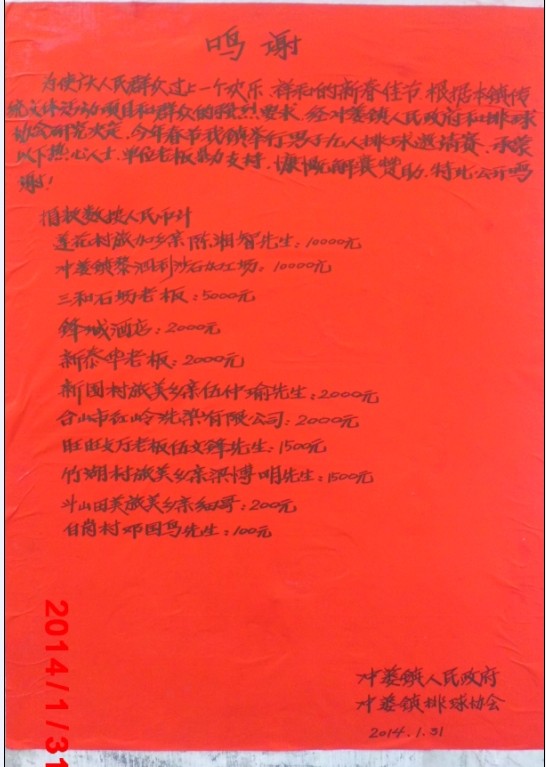 鸣谢
为使广大人民群众过上一个欢乐、祥和的新春佳节,根据本镇传
统文体活动项目和群众的强烈要求,经冲蒌镇人民政府和排球
协会研究决定,今年春节我镇举行男子九人排球邀请赛,承蒙
以下热心人士、单位老板鼎力支持,慷慨解囊赞助,特此公开鸣
谢!
捐款数按人民币计
莲花村旅加乡亲陈湘智先生:10000元
冲蒌镇黎洞利沙石加工场:10000元
三和石场老板:5000元
锋城酒店:2000元
新泰华老板:2000元
南国村旅美乡亲伍仲瑜先生:2000元
台山市红岭洗染有限公司:2000元
旺旺大厅老板伍文锋先生:1500元
竹湖村旅美乡亲梁博明先生:1500元
斗山田美旅美乡亲细哥:200元
白岗村邓国鸟先生:100元
冲蒌镇人民政府
冲蒌镇排球协会
2014.1.31
2014/1/31